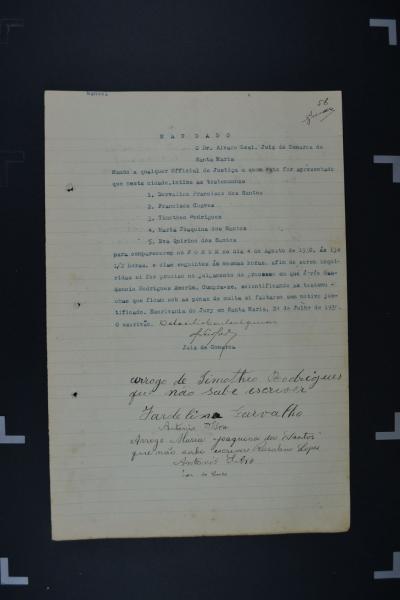 58
M A N D A D O
O Dr. Alvaro Leal, Juiz de Comarca de
Santa Maria
Mando a qualquer Official de Justiça a quem este for apresentado
que nesta cidade, intime as testemunhas
1. Dorvalina Francisca dos Santos
2. Francisco Chaves
3. Timotheo Rodrigues
4. Maria Joaquina dos Santos
5. Eva Quirino dos Santos
para comparecerem no F O R U M no dia 4 de Agosto de 1938, ás 13
1/2 horas, e dias seguintes ás mesmas horas, afim de serem inqui-
ridas si for preciso no julgamento do processo em que é réo
Rodrigues Amorim. Cumpra-se, scientificando as testemu-
nhas que ficam sob as penas de multa si faltarem sem motivo jus-
tificado. Escrivania do Jury em Santa Maria, de Julho de 193
O escrivão.
Juiz de Comarca
arrogo de Timotheo Rodrigues
que não sabe escrever
Carvalho
Antonio
Arrogo Maria Joaquina dos Santos
que não sabe escrever Lopes
Antonio